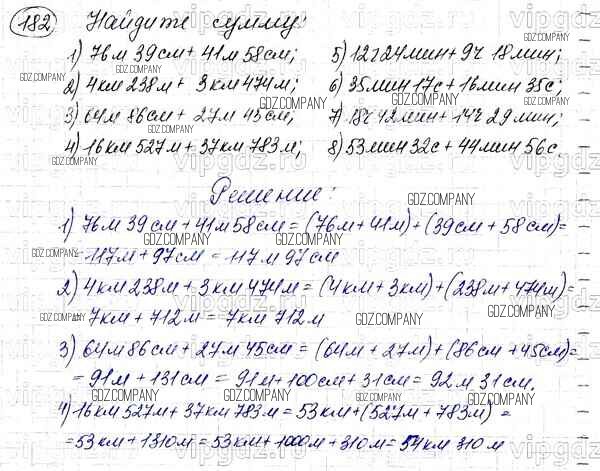 182 Найдите сумму:
1) 76м 39см + 41м 58см;
2) 4км 238м + 3км 474м;
3) 64м 86см + 27м 45см;
4) 16км 527м + 37км 783м;
5) 12ч 24мин + 9ч 18мин;
6) 35мин 17с + 16мин 35с;
7) 18ч 42мин + 14ч 29мин;
8) 53мин 32с + 44мин 56с.
Решение:
1) 76м 39см + 41м 58см = (76м + 41м) + (39см + 58см) =
= 117м + 97см = 117м 97см
2) 4км 238м + 3км 474м = (4км + 3км) + (238м + 474м) =
= 7км + 712м = 7км 712м
3) 64м 86см + 27м 45см = (64м + 27м) + (86см + 45см) =
= 91м + 131см = 91м + 100см + 31см = 92м 31см.
4) 16км 527м + 37км 783м = 53км + (527м + 783м) =
= 53км + 1310м = 53км + 1000м + 310м = 54км 310м